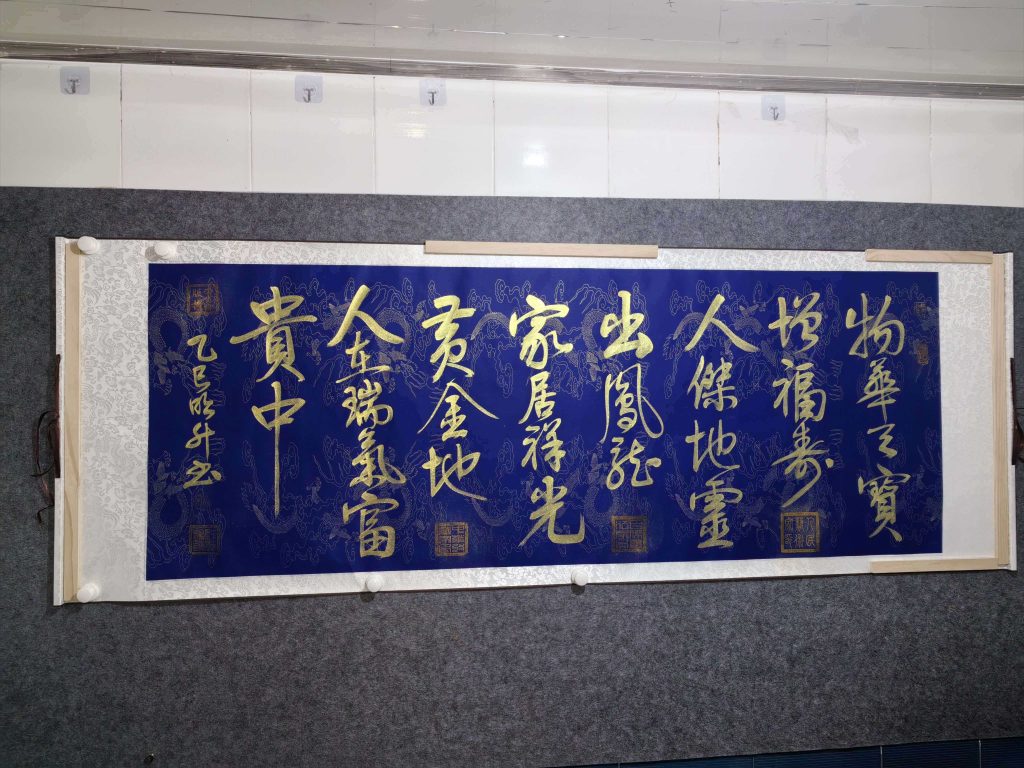 物華天寶
增福壽
人傑地靈
出鳳龍
家居祥光
黃金地
人在瑞氣富
貴中
乙巳明升书